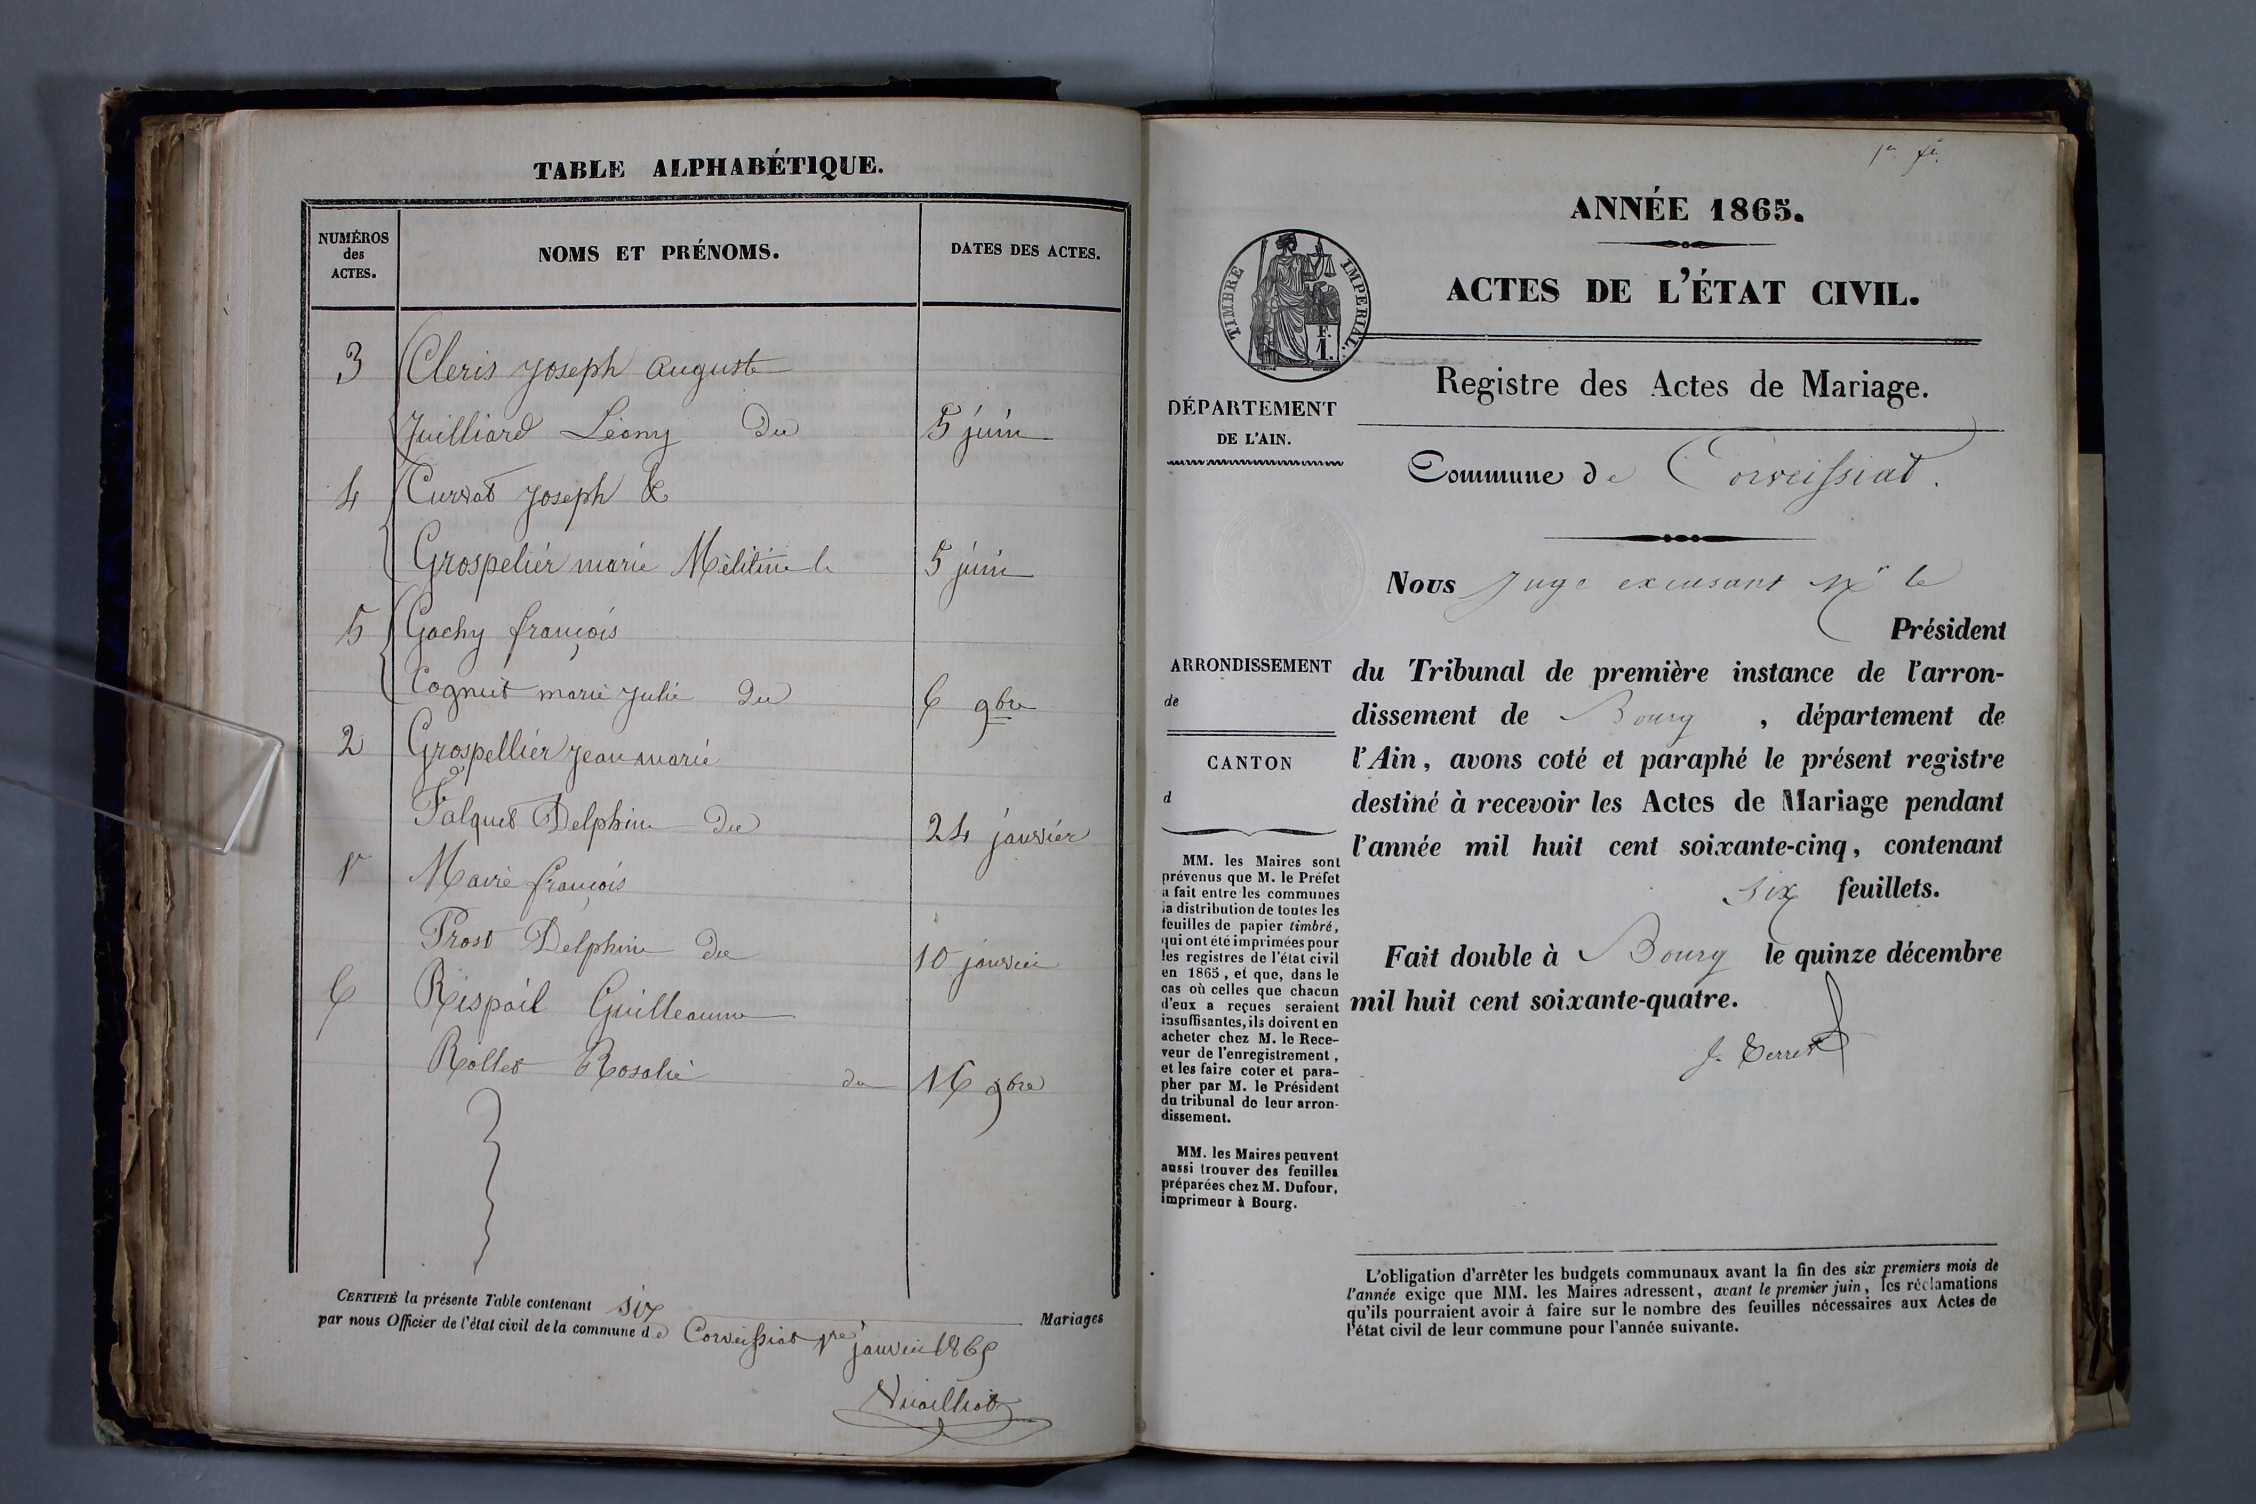 TABLE ALPHABÉTIQUE.
NUMÉROS
des
ACTES.
NOMS ET PRÉNOMS.
DATES DES ACTES.
3 Cleris joseph auguste
Juilliard Léony Du 5 juin
4 Currat joseph &
Grospelier marie Mélitine le 5 juin
5 Gachy françois
Cognut marie julie du 6 9bre
2 Grospellier jean marie
Falquet Delphine Du 24 janvier
1er Maire françois
Prost Delphine du 10 janvier
6 Rispail Guillaume
Rollet Rosalie du 16 9bre
CERTIFIÉ la présente Table contenant six Mariages
par nous Officier de l'état civil de la commune de Corveissiat 1er janvier 1865
1er f.
ANNÉE 1865.
ACTES DE L'ÉTAT CIVIL.
TIMBRE IMPERIAL.
F.
1.
Registre des Actes de Mariage.
DÉPARTEMENT
DE L'AIN.
Commune de Corveissiat.
Nous juge excusant Mr le
Président
du Tribunal de première instance de l'arron-
dissement de Bourg, département de
l'Ain, avons coté et paraphé le présent registre
destiné à recevoir les Actes de Mariage pendant
l'année mil huit cent soixante-cinq, contenant
six feuillets.
Fait double à Bourg le quinze décembre
mil huit cent soixante-quatre.
ARRONDISSEMENT
de
CANTON
d
MM. les Maires sont
prévenus que M. le Préfet
a fait entre les communes
la distribution de toutes les
feuilles de papier timbré,
qui ont été imprimées pour
les registres de l'état civil
en 1865, et que, dans le
cas où celles que chacun
d'eux a reçues seraient
insuffisantes, ils doivent en
acheter chez M. le Rece-
veur de l'enregistrement,
et les faire coter et para-
pher par M. le Président
du tribunal de leur arron-
dissement.
MM. les Maires peuvent
aussi trouver des feuilles
préparées chez M. Dufour,
imprimeur à Bourg.
L'obligation d'arrêter les budgets communaux avant la fin des six premiers mois de
l'année exige que MM. les Maires adressent, avant le premier juin, les réclamations
qu'ils pourraient avoir à faire sur le nombre des feuilles nécessaires aux Actes de
l'état civil de leur commune pour l'année suivante.